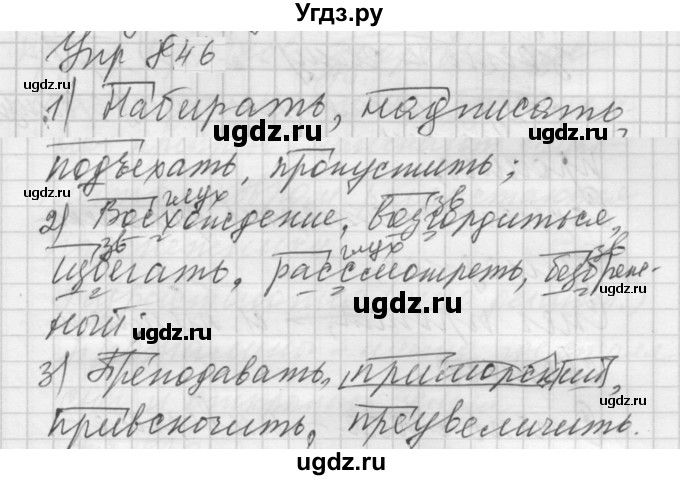 Угдз.ру
Упр 846
ugdz.ru ugdz.ru
1) Набирать, надписать,
ugdz.ru ugdz.ru
подъехать, пропустить;
глух зв
2) Восхождение, возгордиться,
зв глух зв
избегать, рассмотреть, безвреме-
ugdz.ru ugdz.ru
нный.
ugdz.ru ugdz.ru
3) Преподавать, приморский,
привскочить, преувеличить.
ugdz.ru ugdz.ru
ugdz.ru